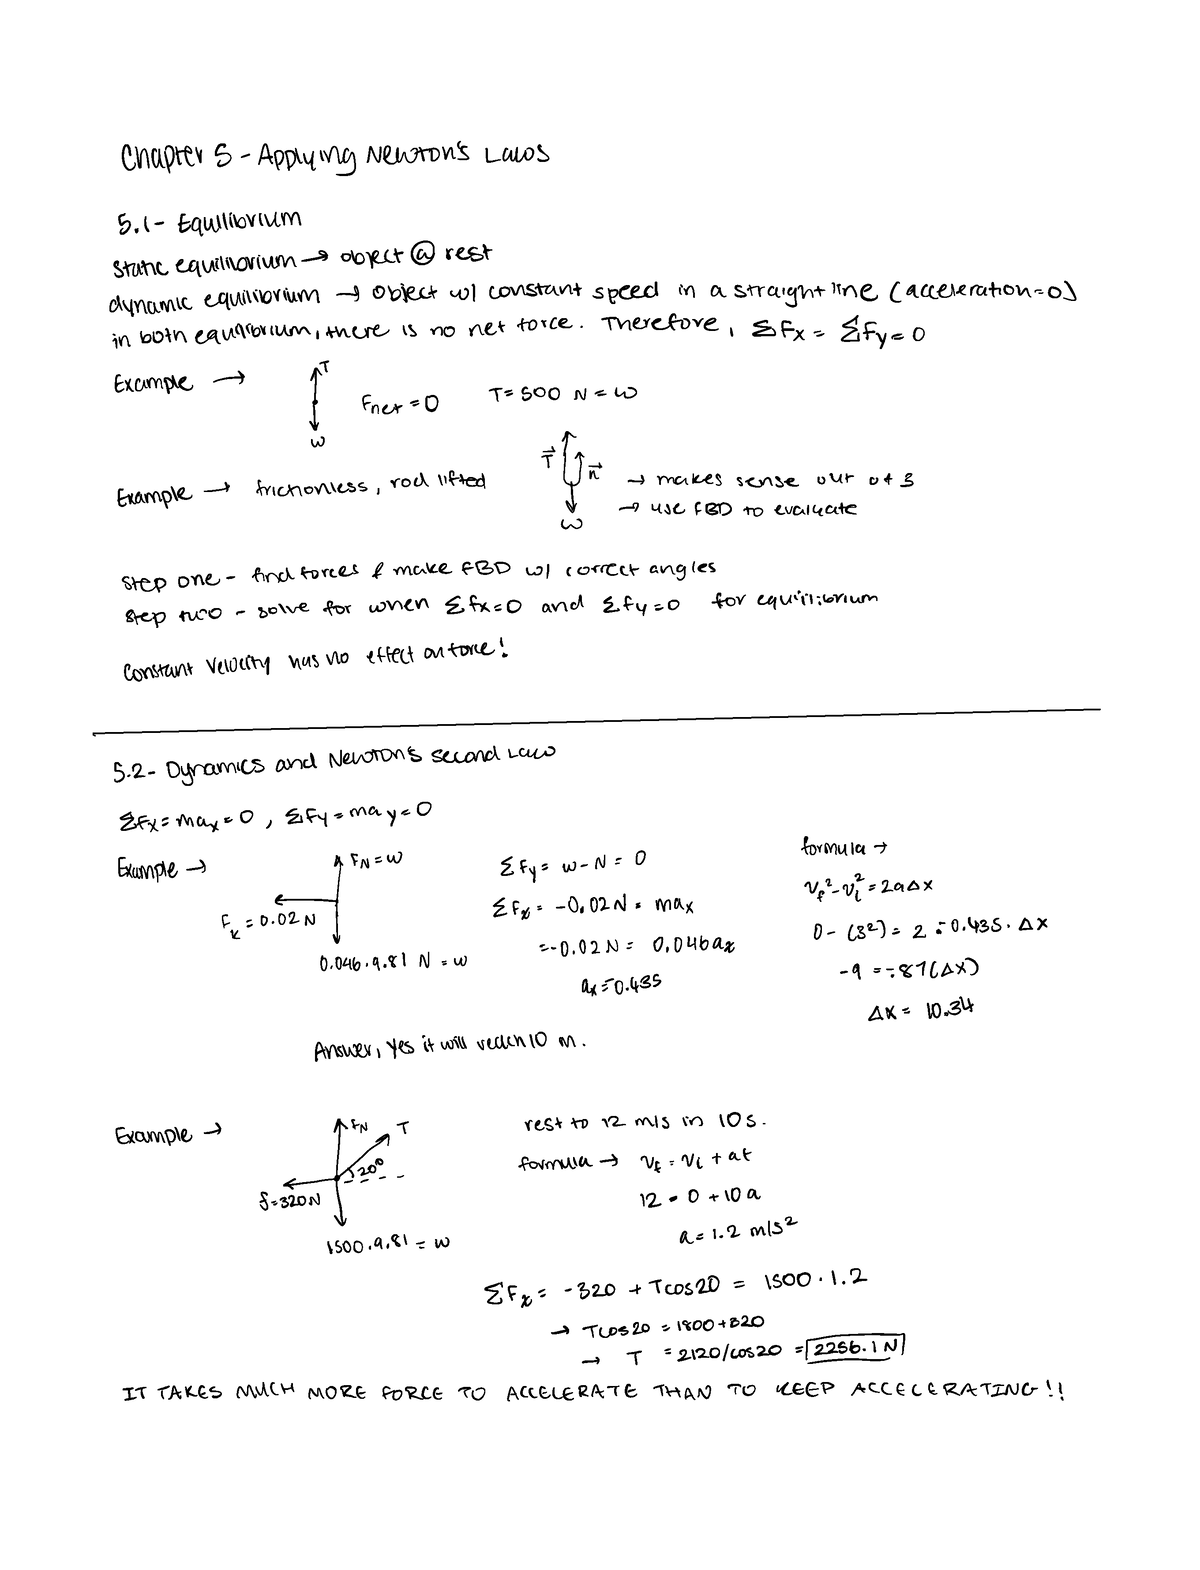 Chapter 5 - Applying Newton's Laws
5.1 - Equilibrium
Static equilibrium → object @ rest
dynamic equilibrium → object w/ constant speed in a straight line (acceleration=0)
in both equilibrium, there is no net force. Therefore, ΣFx = ΣFy = 0
Example →
T
w
Fnet = 0
T = 500 N = w
Example → frictionless, rod lifted
T⃗
n⃗
w
→ makes sense out of 3
→ use FBD to evaluate
Step one - find forces & make FBD w/ correct angles
Step two - solve for when Σfx=0 and Σfy=0 for equilibrium
Constant velocity has no effect on force!
5.2 - Dynamics and Newton's second Law
ΣFx = max = 0, ΣFy = may = 0
Example →
FN = w
Fk = 0.02 N
0.046 · 9.81 N = w
ΣFy = w - N = 0
ΣFx = -0.02N = max
= -0.02N = 0.046ax
ax = -0.435
formula →
vf² - vi² = 2aΔx
0 - (3²) = 2 · -0.435 · Δx
-9 = -.87(Δx)
Δx = 10.34
Answer, yes it will reach 10 m.
Example →
FN
T
20°
f = 320N
1500 · 9.81 = w
rest to 12 m/s in 10s.
formula → vf = vi + at
12 = 0 + 10a
a = 1.2 m/s²
ΣFx = -320 + Tcos20 = 1500 · 1.2
→ Tcos20 = 1800 + 320
→ T = 2120/cos20 = 2256.1 N
IT TAKES MUCH MORE FORCE TO ACCELERATE THAN TO KEEP ACCELERATING!!